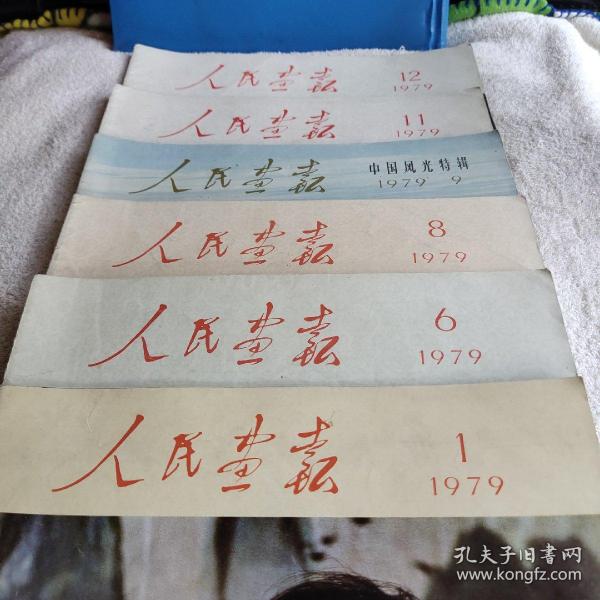 人民画報
12
1979
人民画報
11
1979
人民画報
中国风光特辑
1979 9
人民画報
8
1979
人民画報
6
1979
人民画報
1
1979
孔夫子旧书网
www.kongfz.com